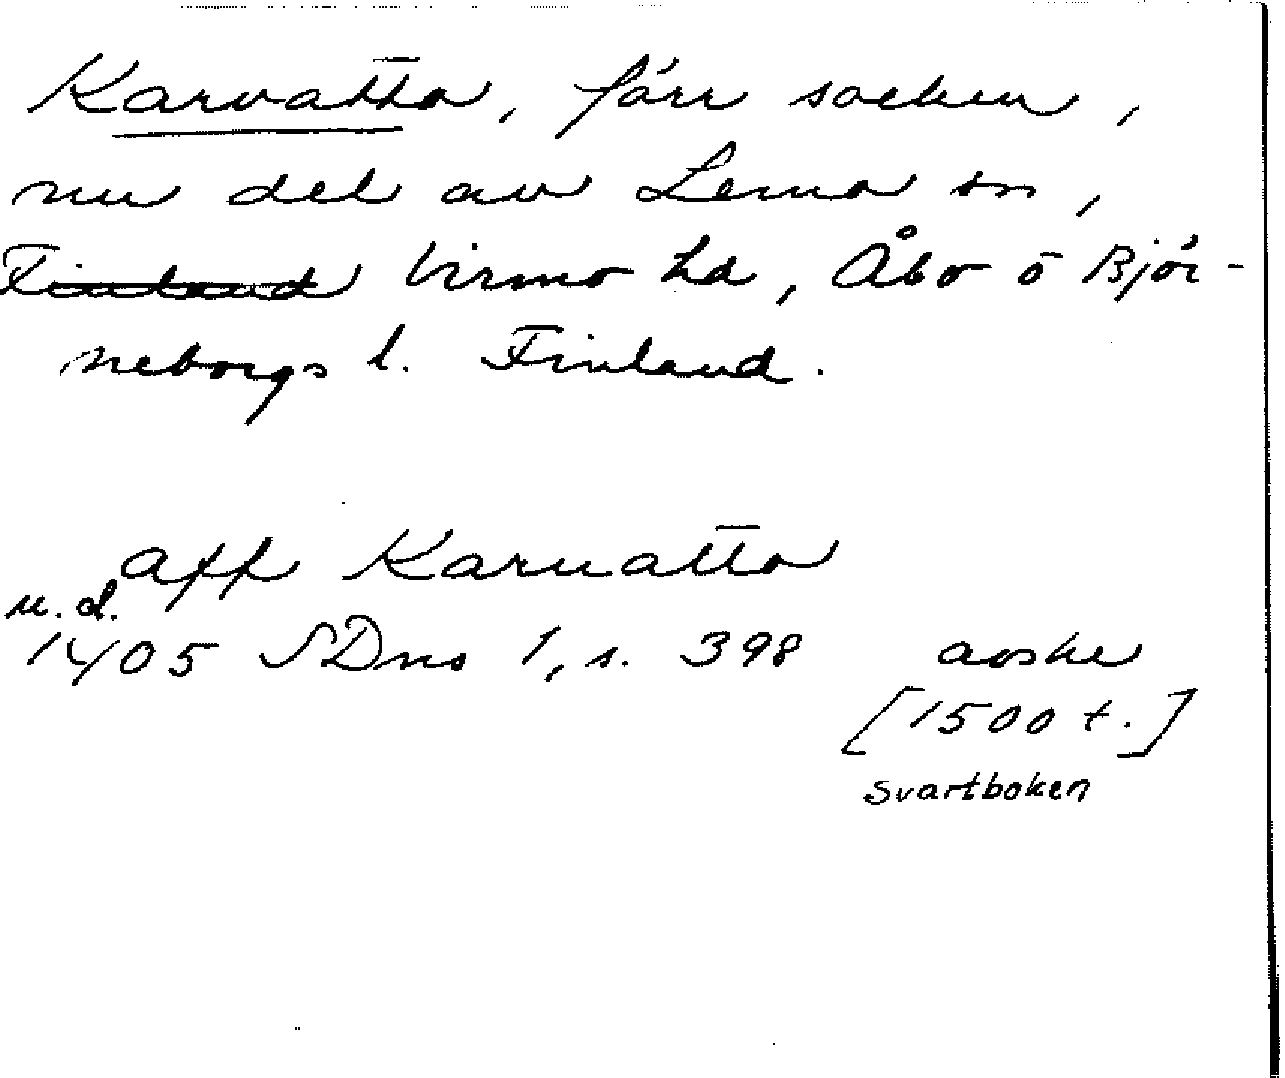 Karvatto, förr socken,
nu del av Lemo sn,
Finland Virmo hd, Åbo o Björ-
neborgs l. Finland.
aff Karuatto
u.d.
1405 SDns 1, s. 398 avskr
[1500 t.]
svartboken